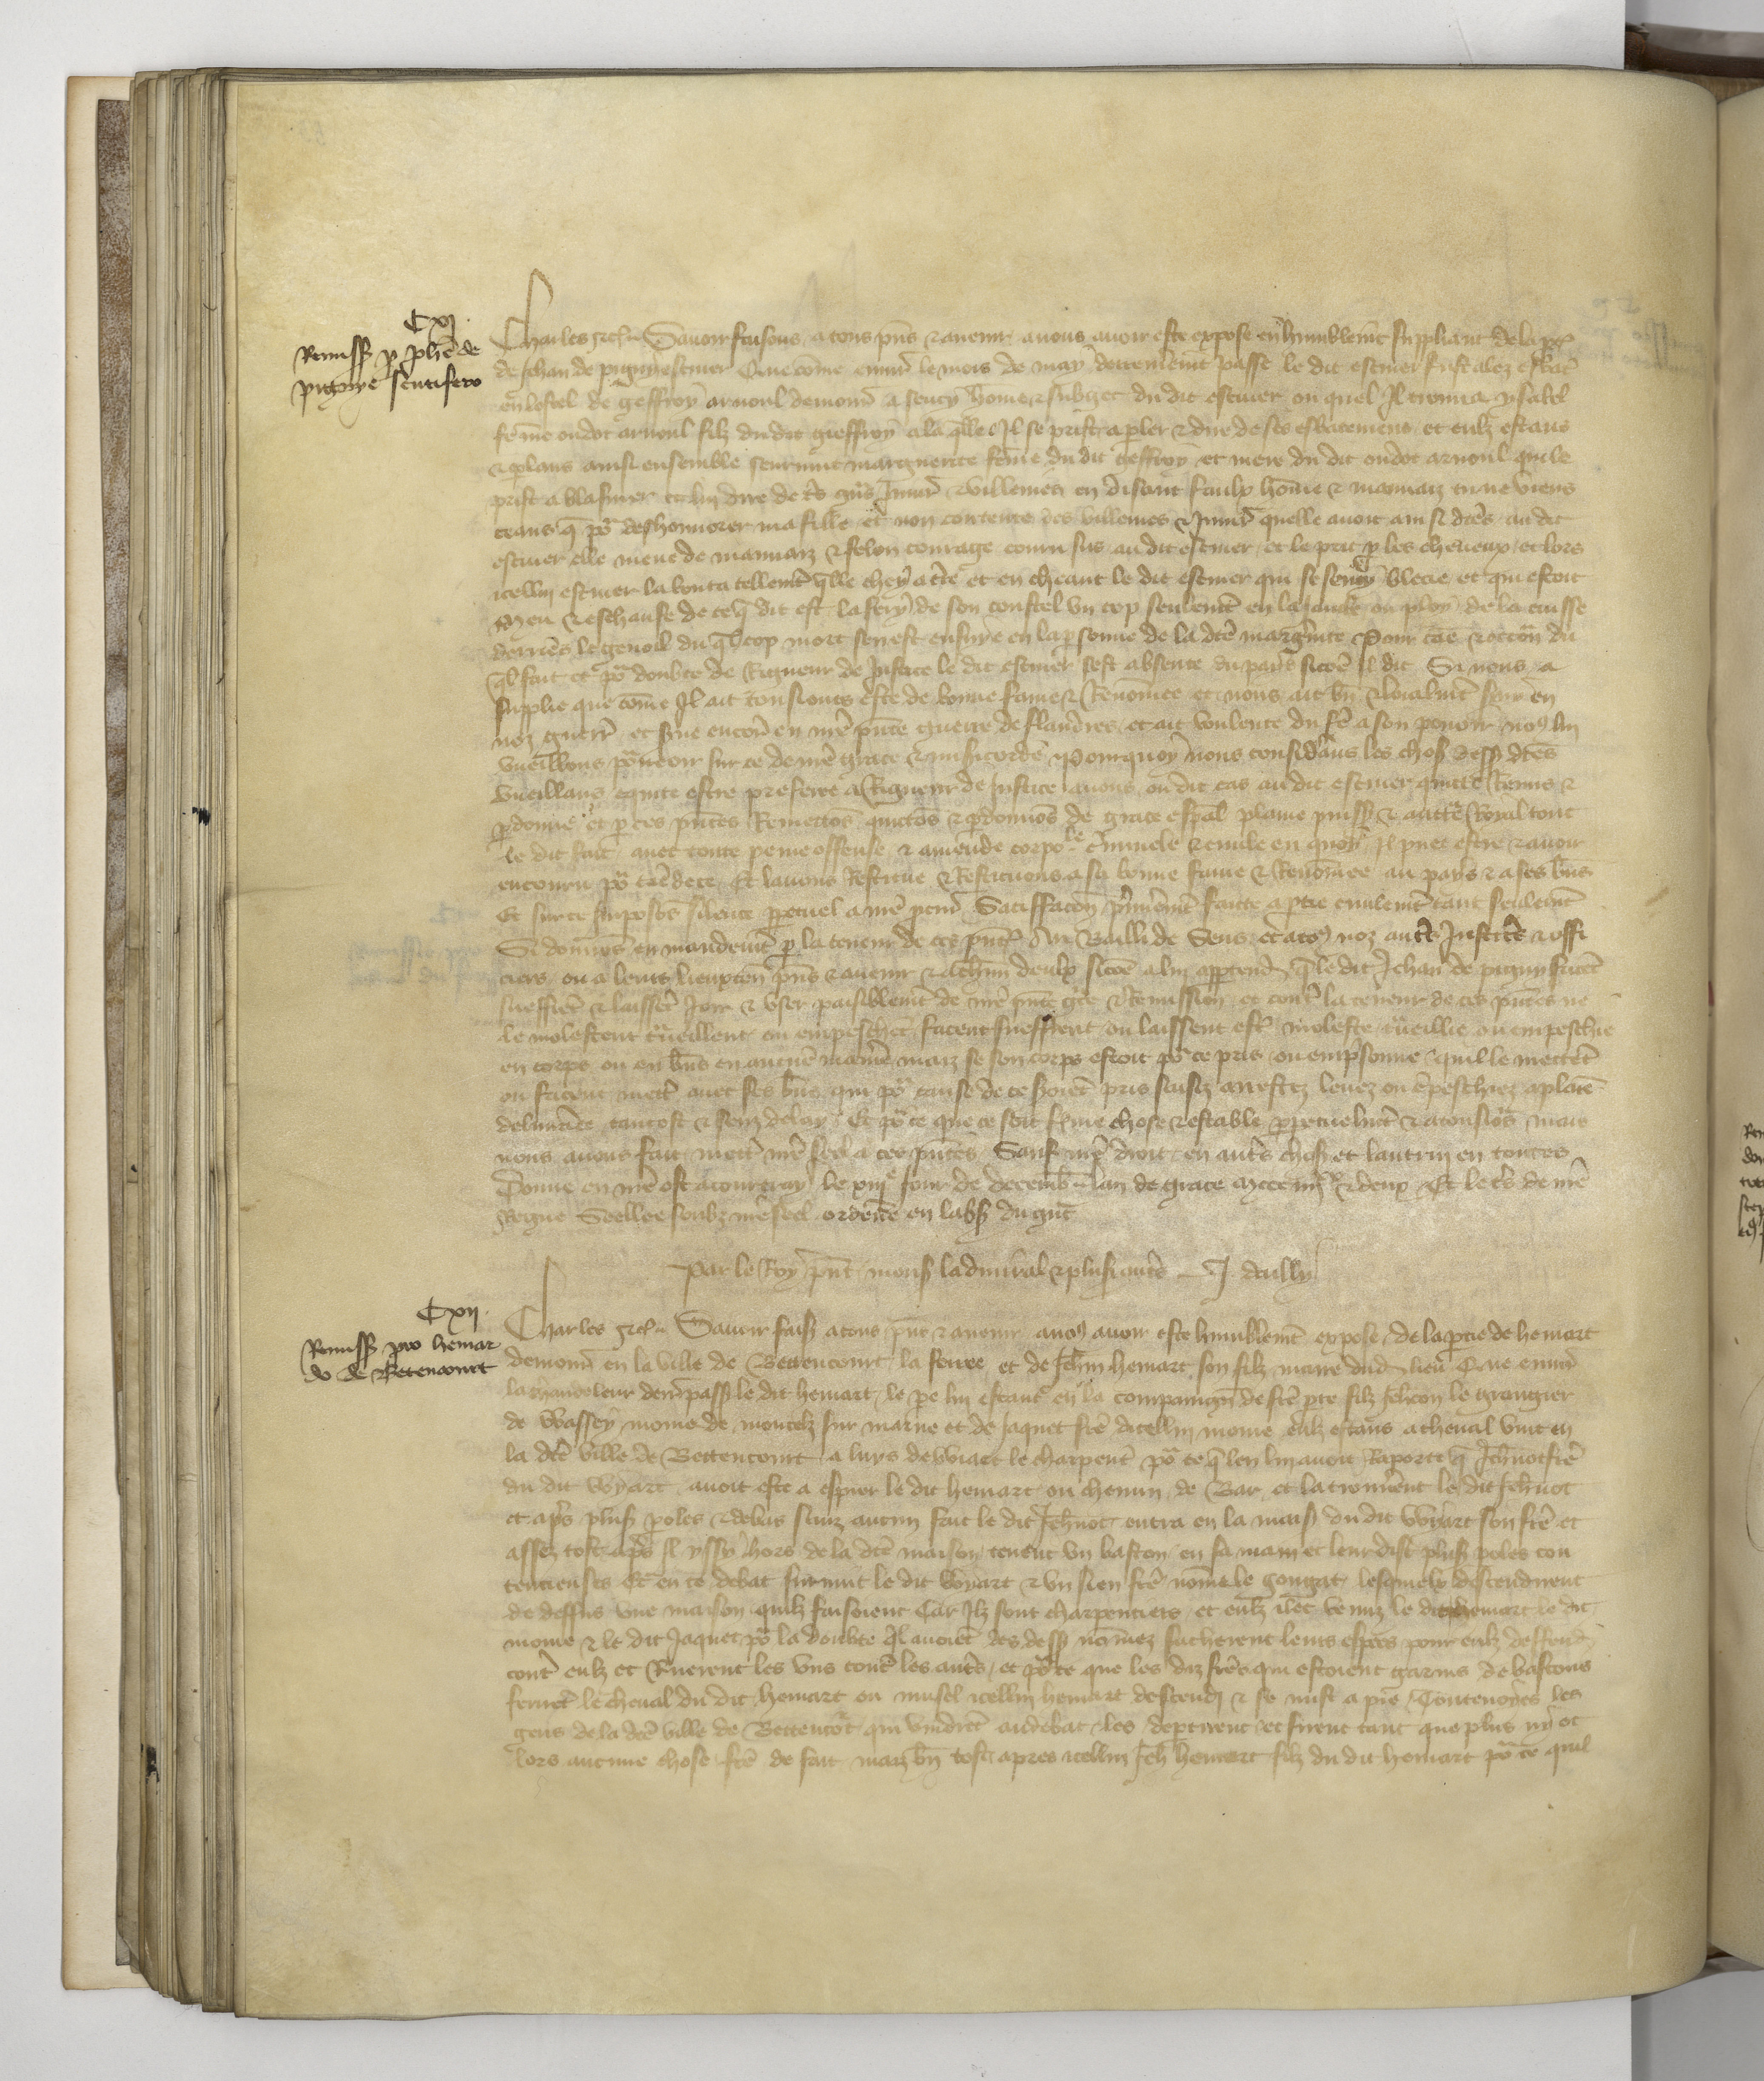 CXI
Remiss p Joh̄e de
pigny scutifero
Charles &c Savoir faisons a tous p̄ns & avenir a nous avoir este expose en humblemēt suppliant de la p̄tie
de Jehan de pigny escuier Que cōme environ le mois de may derrenieremēt passe le dit escuier fust alez esbatr̄
en lostel de Geffroy arnoul demour̄ a Sency home & subget du dit escuier ou quel Il trouva ysabel
fēme oudot arnoul filz du dit gieffroy a la q̄lle Il se prist a p̄ler & dire de ses esbatemens et eulz estans
& p̄lans ainsi ensemble seurvint marguerite fēme du dit Geffroy et mere du dit oudot arnoul qui le
prist a blasmer et lui dire de t̄s gn̄s Iniur̄ & villenies en disant faulx hōme & mauvaiz tu ne viens
ceans q̄ po' deshonnorer ma fille et non contente des villenies & Iniur̄ quelle avoit ainsi dc̄es au dit
escuier elle meue de mauvaiz & felon courage couru sus au dit escuier et le prit p les cheveux et lors
icellui escuier la bouta tellemēt q̄lle chey a t̄re et en cheant le dit escuier qui se senty blecie et qui estoit
meu & eschaufe de ce q̄ dit est la fery de son coustel un cop seulemēt en la jambe ou ploy de la cuisse
derriēs le genoil du q̄l cop mort sen est ensuye en la p̄sonne de la dc̄e marḡite Pour cāe & occōn du
q̄l fait et po' doubte de Rigueur de Justice le dit escuier sest absente du païs sicōe il dit Si nous a
supplie que cōme Il ait tousiours este de bonne fame & Renōmee et nous ait bn̄ & loialmēt servi en
noz guerr̄ et serve encor̄ en nr̄e p̄nte guerre de flandres et ait voulente du fe̅ a son povoir no9 lui
vueillons po'veoir sur ce de nr̄e grace & misericorde Pourquoy nous considans les choses dess dc̄es
Vueillans equite estre preferee a Rigueur de Justice avons ou dit cas au dit escuier quitte Remis &
p̄donne et p ces p̄ntes Remettōs quittōs & p̄donnōs de grace esp̄al plaine puiss & auctē Royal tout
le dit fait avec toute peine offense & amende corpo'le c̄minele & civile en quoy Il puet estre & avoir
encouru po' cāe de ce Et lavons Restitue & Restituons a sa bonne fame & Renōmee au pays & a ses bn̄s
Et sur ce imposons silence p̄petuel a nr̄e p̄cur̄ Satiffacōn p̄mieremēt faicte a p̄tie civilemēt tant seulemēt
Si donnōs en mandemēt p la teneur de ces p̄ntes Au Bailli de Sens et a to9 noz aut̄s Justic̄rs & offi
ciers ou a leurs lieuxten̄ p̄ns & avenir & a ch̄un deulx sicōe a lui app̄tend̄ q̄ le dit Jehan de pigny facēt
sueffrēt & laissēt Joir & user paisiblemēt de nr̄e p̄nte gr̄ce & Remission et cont̄ la teneur de ces p̄ntes ne
le molestent t̄veillent ou empeschēt facent sueffrent ou laissent est̄ moleste t̄veillie ou empeschie
en corps ou en bn̄s en aucune maniē maiz se son corps estoit po' ce pris ou emp̄sonne quil le mettēt
ou facent mett̄ avec ses bn̄s qui po' cause de ce soiēt pris saisiz arrestez levez ou ēpeschiez a plaine
delivrāce tantost & sanz delay Et po' ce que ce soit ferme chose & estable p̄petuelmēt & a tousio's mais
nous avons fait mett̄ nr̄e seel a ces p̄ntes Sauf nr̄e droit en aut̄s choses et lautruy en toutes
Donne en nr̄e ost a courtray le xiiije jour de decembr̄ lan de grace Mccc iiijxx & deux Et le t̄s de nr̄e
Regne Seelle soubz nr̄e seel ordene en labs du grāt
Par le Roy p̄nt mons ladmiral & plus aut̄s J. dailly
CXII
Remiss pro hemar
do de Betencourt
Charles &c Savoir fais a tous p̄ns & avenir a no9 avoir este humblemēt expose de la p̄tie de hemart
demour̄ en la ville de Bettencourt la ferree et de Jeh̄n hemart son filz maire dud lieu Que environ
la chandeleur derr̄ pass le dit hemart le pe lui estant en la compaignie de fr̄e p̄re filz Jehcon le grangier
de Wassey moine de moncelz sur marne et de Jaquet fr̄e dicellui moine eulz estans a cheval vint en
la dc̄e ville de Bettencourt a luys de Wiart le charpent̄ po' ce q̄ len lui avoit Raporte q̄ Jeh̄not fr̄e
du dit Wyart avoit este a espier le dit hemart ou chemin de Bar et la trouvēnt le dit Jeh̄not
et ap̄s plus p̄oles & debas sanz aucun fait le dit Jeh̄not entra en la mais du dit Wyart son fr̄e et
assez tost ap̄s il yssy hors de la dc̄e maison tenent un baston en sa main et leur dist plus p̄oles con
tencieuses Et en ce debat survint le dit Wyart & un sien fr̄e nōme le gougat lesquelx descendirent
de dessus une maison quilz faisoient Car Ilz sont charpentiers et eulz illec venuz le dit hemart le dit
moine & le dit Jaquet po' la doubte Il avoiēt des dess nōmez sacherent leurs espees pour eulz deffend̄
cont̄ eulz et Ruerent les uns cont̄ les aut̄s et po' ce que les diz fr̄es qui estoient garnis de bastons
ferirēt le cheval du dit hemart ou musel icellui hemart descendi & se mist a pie Toutevoyes les
gens de la dc̄e ville de Bettenco't qui vindrēt au debat les dep̄tirent et firent tant que plus ny ot
lors aucune chose fc̄e de fait maiz bn̄ tost apres icellui Jeh̄ hemart filz du dit hemart po' ce quil